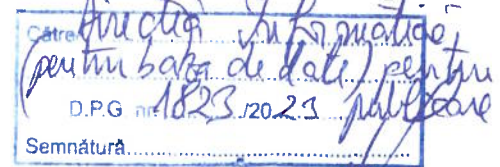 Către Direcția Informatică,
(pentru baza de date) pentru
D.P.G nr. 1823 /2023 publicare
Semnătură